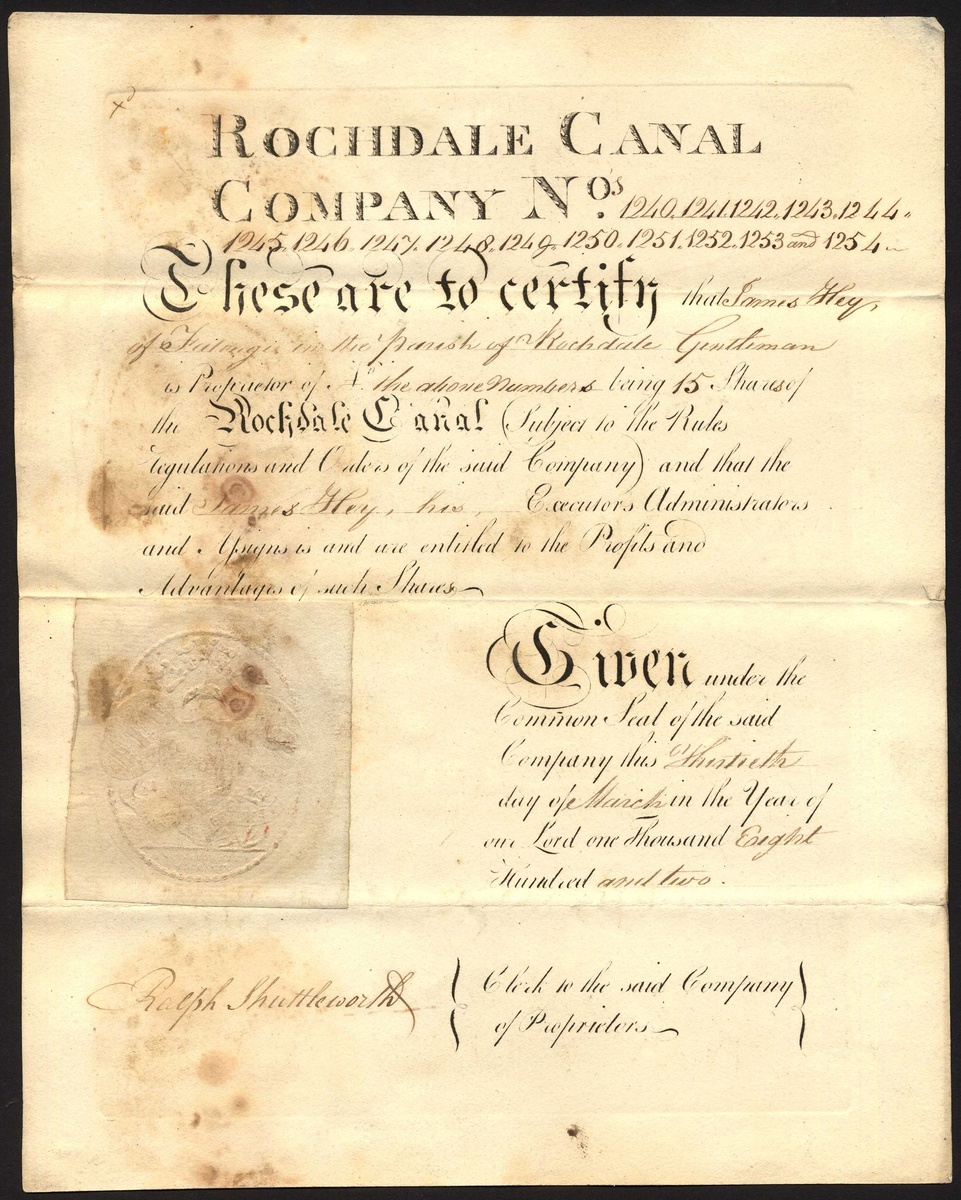 xd
ROCHDALE CANAL
COMPANY Nos. 1240, 1241, 1242, 1243, 1244,
1245, 1246, 1247, 1248, 1249, 1250, 1251, 1252, 1253 and 1254
These are to certify that James Hey,
of in the parish of Rochdale Gentleman
is Proprietor of No. the above Numbers being 15 Shares of
the Rochdale Canal (Subject to the Rules
regulations and Orders of the said Company) and that the
said James Hey, his, Executors Administrators
and Assigns is and are entitled to the Profits and
Advantages of such Shares
Given under the
Common Seal of the said
Company this Thirtieth
day of March in the Year of
our Lord one Thousand Eight
Hundred and two.
Ralph Shuttleworth
Clerk to the said Company
of Proprietors